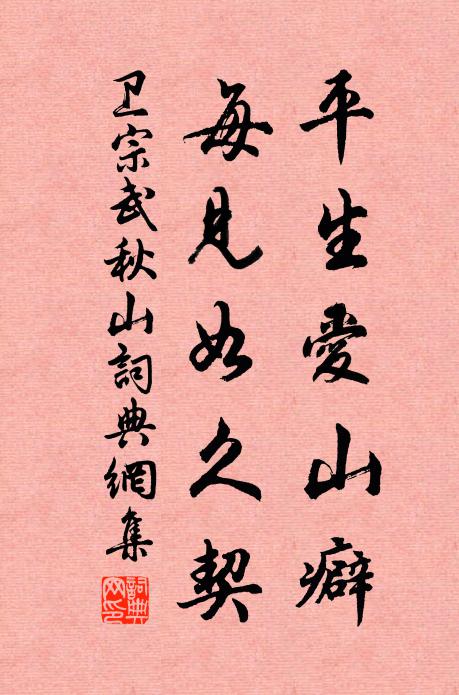 平生愛山癖
每見如久契
卫宗武秋山詞典網集
詞典網印